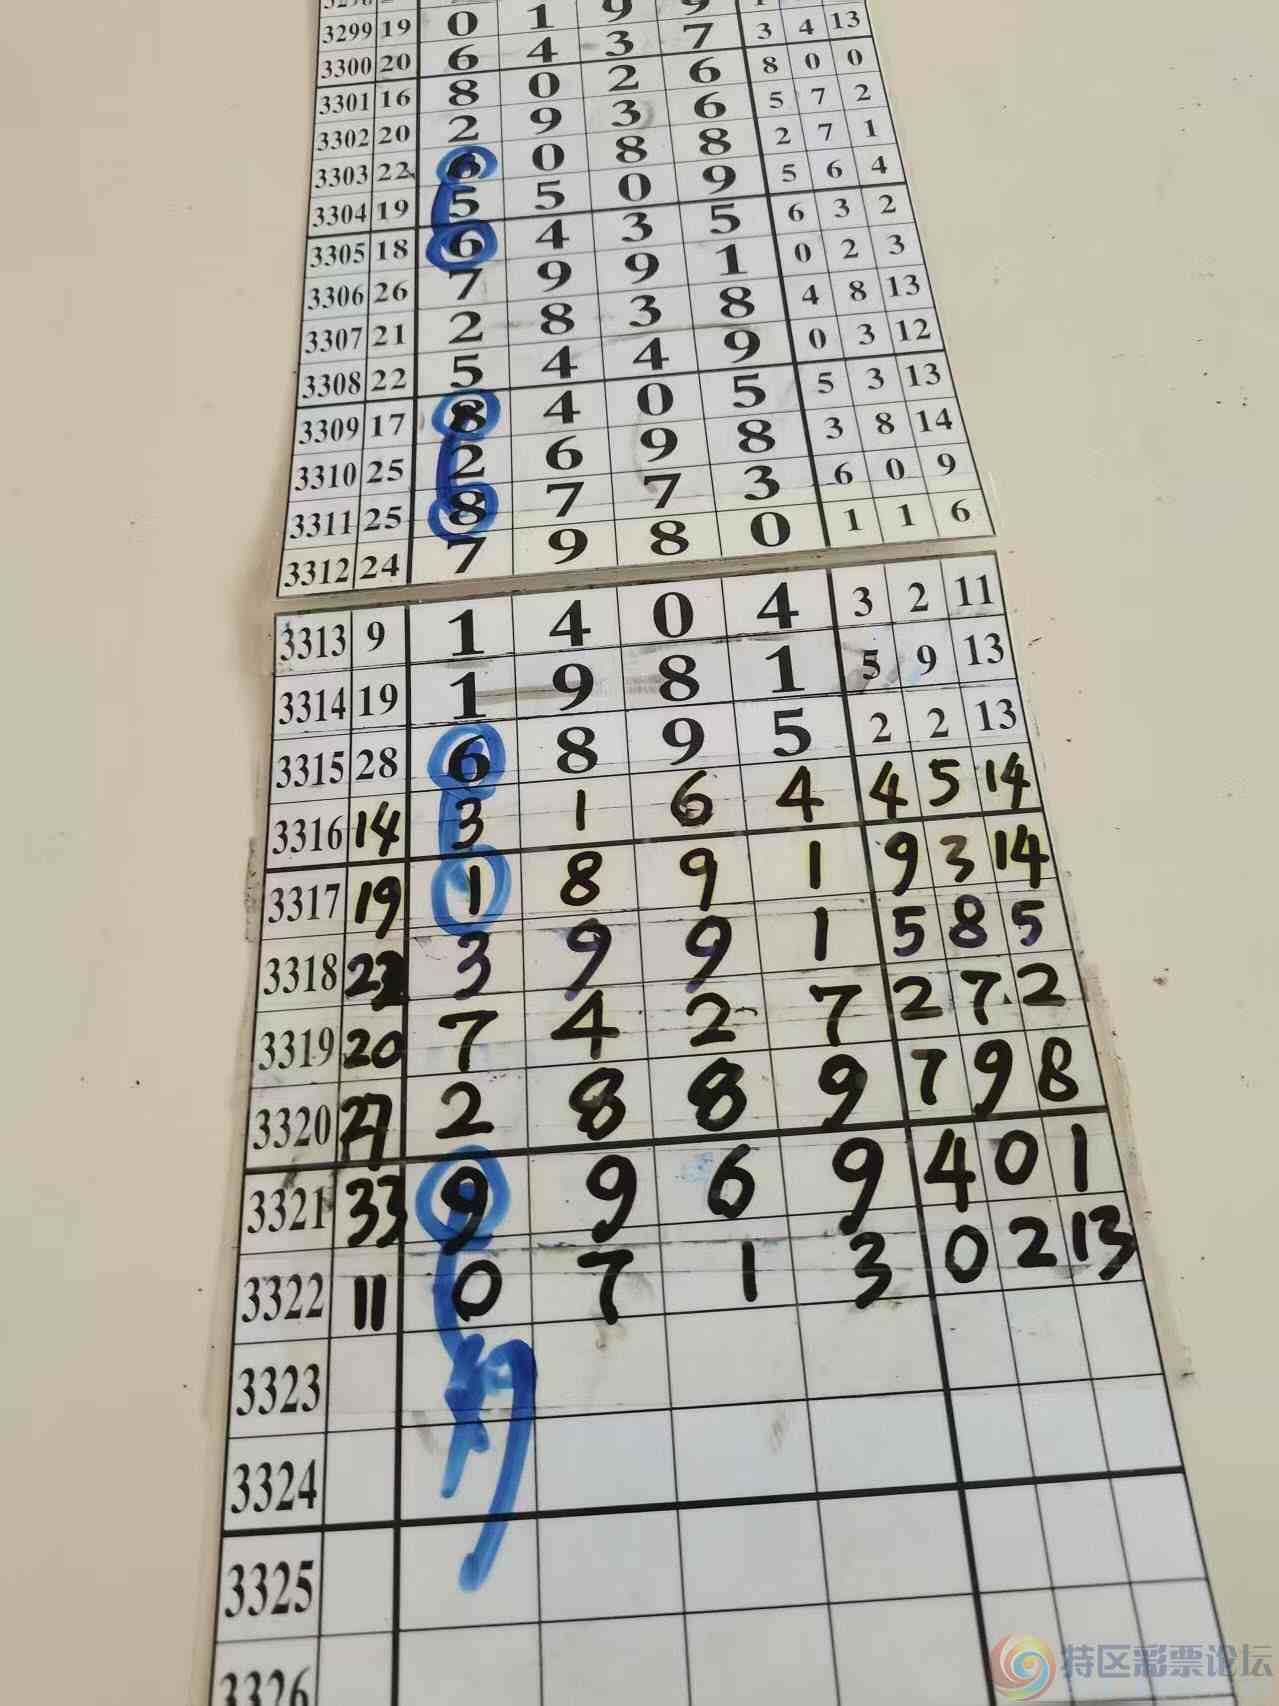 3299 19 0 1 9 9 3 4 13
3300 20 6 4 3 7 8 0 0
3301 16 8 0 2 6 5 7 2
3302 20 2 9 3 6 2 7 1
3303 22 6 0 8 8 5 6 4
3304 19 5 5 0 9 6 3 2
3305 18 6 4 3 5 0 2 3
3306 26 7 9 9 1 4 8 13
3307 21 2 8 3 8 0 3 12
3308 22 5 4 4 9 5 3 13
3309 17 8 4 0 5 3 8 14
3310 25 2 6 9 8 6 0 9
3311 25 8 7 7 3 1 1 6
3312 24 7 9 8 0
3313 9 1 4 0 4 3 2 11
3314 19 1 9 8 1 5 9 13
3315 28 6 8 9 5 2 2 13
3316 14 3 1 6 4 4 5 14
3317 19 1 8 9 1 9 3 14
3318 22 3 9 9 1 5 8 5
3319 20 7 4 2 7 2 7 2
3320 27 2 8 8 9 7 9 8
3321 33 9 9 6 9 4 0 1
3322 11 0 7 1 3 0 2 13
3323
3324
3325
3326
特区彩票论坛